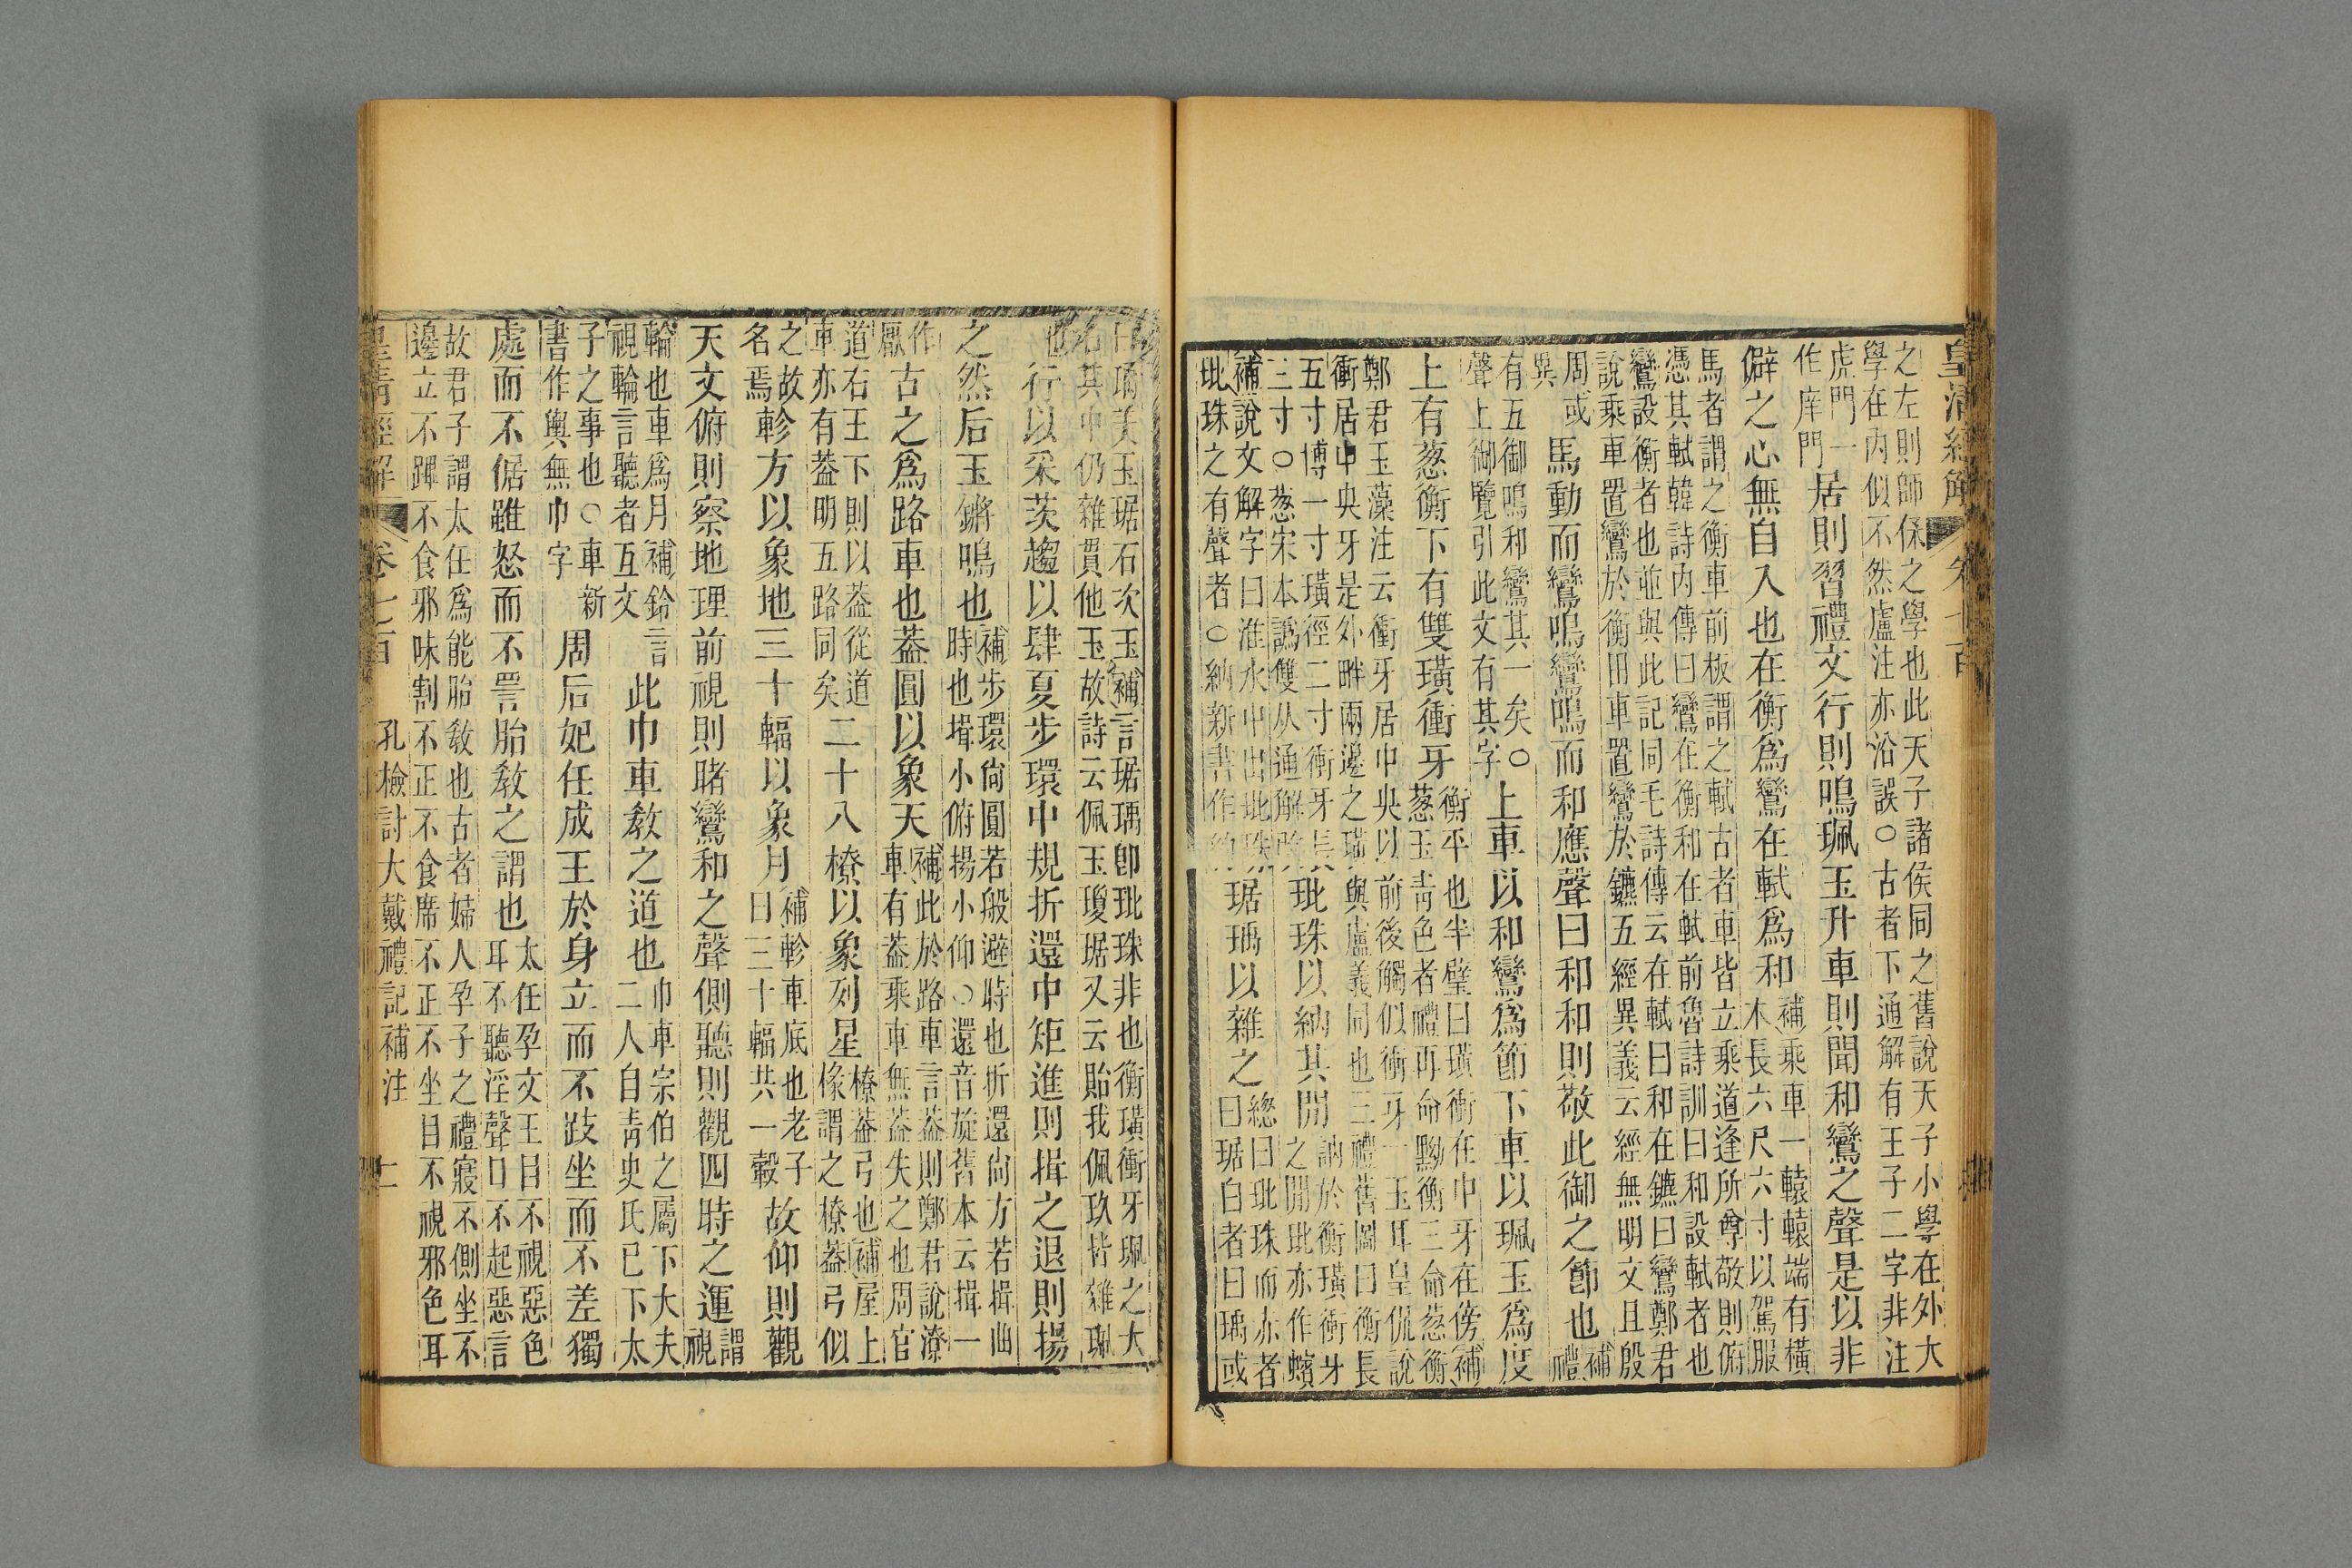 皇清經解
卷七百
之左則師保之學也此天子諸侯同之舊說天子小學在外大
學在內似不然盧注亦沿誤○古者下通解有王子二字非注
虎門一
作庠門
居則習禮文行則鳴珮玉升車則聞和鸞之聲是以非
僻之心無自入也在衡爲鸞在軾爲和
補乘車一轅轅端有橫
木長六尺六寸以駕服
馬者謂之衡車前板謂之軾古者車皆立乘道逢所尊敬則俯
憑其軾韓詩內傳曰鸞在衡和在軾前魯詩訓曰和設軾者也
鸞設衡者也並與此記同毛詩傳云在軾曰和在鑣曰鸞鄭君
說乘車置鸞於衡田車置鸞於鑣五經異義云經無明文且殷
周或
異
馬動而鸞鳴鸞鳴而和應聲曰和和則敬此御之節也
補
禮
有五御鳴和鸞其一矣○
聲上御覽引此文有其字
上車以和鸞爲節下車以珮玉爲度
上有葱衡下有雙璜衝牙
衡平也半璧曰璜衝在中牙在傍補
葱玉靑色者禮再命黝衡三命葱衡
鄭君玉藻注云衝牙居中央以前後觸似衝牙一玉耳皇侃說
衝居中央牙是外畔兩邊之璜與盧義同也三禮舊圖曰衡長
五寸博一寸璜徑二寸衝牙長
三寸○葱宋本譌雙从通解
玭珠以納其閒
納於衡璜衝牙
之閒玭亦作蠙
補說文解字曰淮水中出玭珠
玭珠之有聲者○納新書作約
琚瑀以雜之
總曰玭珠而赤者
曰琚白者曰瑀或
曰瑀美玉琚石次玉補言琚瑀卽玭珠非也衡璜衝牙珮之大
名其中仍雜貫他玉故詩云佩玉瓊琚又云貽我佩玖皆雜珮
也
行以采茨趨以肆夏步環中規折還中矩進則揖之退則揚
之然后玉鏘鳴也
補步環尙圓若般避時也折還尙方若揖曲
時也揖小俯揚小仰○還音旋舊本云揖一
作
厭
古之爲路車也蓋圓以象天
補此於路車言蓋則鄭君說潦
車有蓋乘車無蓋失之也周官
道右王下則以蓋從道
車亦有蓋明五路同矣
二十八橑以象列星
橑蓋弓也補屋上
椽謂之橑蓋弓似
之故
名焉
軫方以象地三十輻以象月
補軫車底也老子
曰三十輻共一轂
故仰則觀
天文俯則察地理前視則睹鸞和之聲側聽則觀四時之運
謂
視
輪也車爲月補鈴言
視輪言聽者互文
此巾車敎之道也
巾車宗伯之屬下大夫
二人自靑史氏已下太
子之事也○車新
書作輿無巾字
周后妃任成王於身立而不跂坐而不差獨
處而不倨雖怒而不詈胎敎之謂也
太任孕文王目不視惡色
耳不聽淫聲口不起惡言
故君子謂太任爲能胎敎也古者婦人孕子之禮寢不側坐不
邊立不蹕不食邪味割不正不食席不正不坐目不視邪色耳
皇清經解
卷七百
孔檢討大戴禮記補注